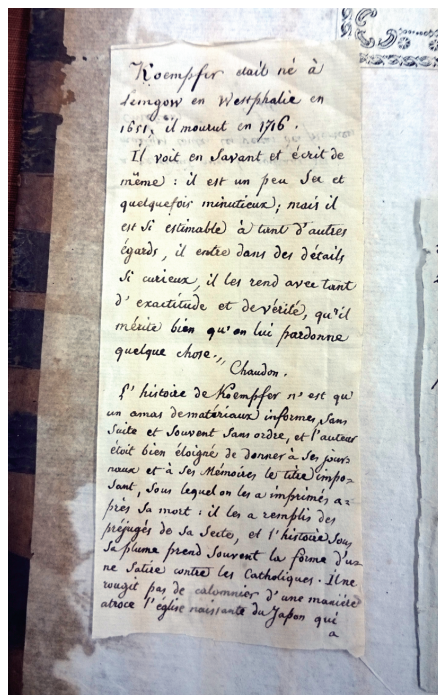 Koempfer etait né à
Lemgow en Westphalie en
1651, il mourut en 1716.
Il voit en Savant et écrit de
même : il est un peu Sec et
quelquefois minutieux; mais il
est Si estimable à tant d'autres
égards, il entre dans des détails
Si curieux, il les rend avec tant
d'exactitude et de vérité, qu'il
mérite bien qu'on lui pardonne
quelque chose.,,
Chaudon.
L'histoire de Koempfer n'est qu'
un amas de matériaux informes, Sans
Suite et Souvent Sans ordre, et l'auteur
étoit bien éloigné de donner à Ses jour-
naux et à Ses Mémoires le titre impo-
Sant, Sous lequel on les a imprimés a-
près Sa mort : il les a remplis des
préjugés de Sa Secte, et l'histoire Sous
Sa plume prend Souvent la forme d'u-
ne Satire contre les Catholiques. Il ne
rougit pas de calomnier d'une manière
atroce l'église naissante du Japon qui
a